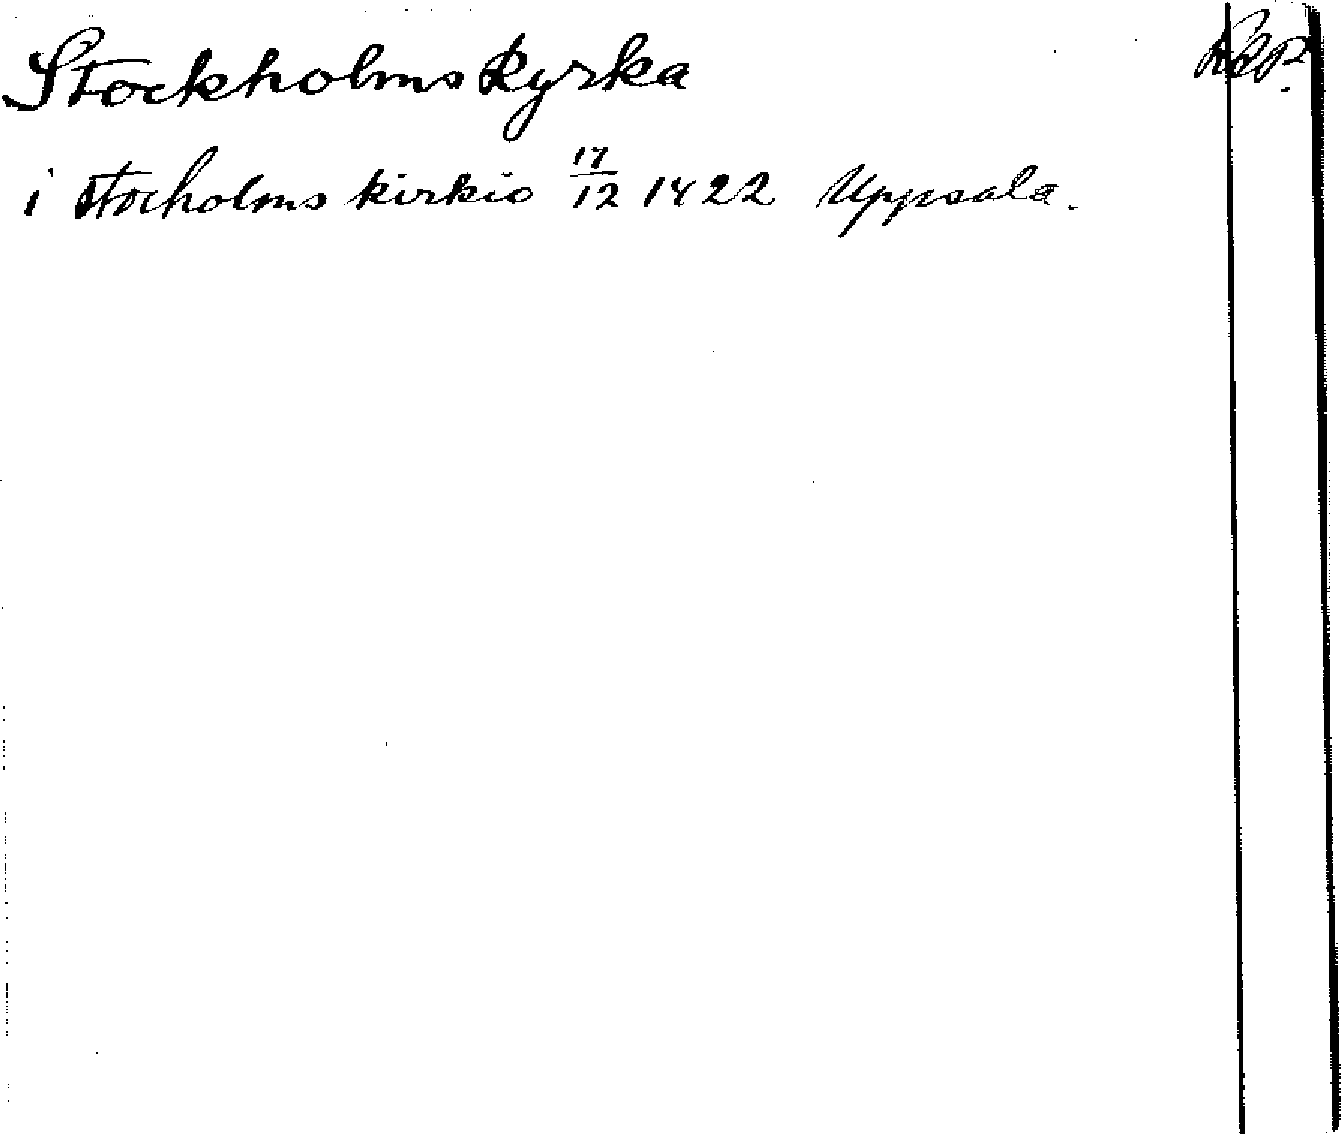 Stockholms kyrka
i stocholms kirkio 17/12 1422 Uppsala.